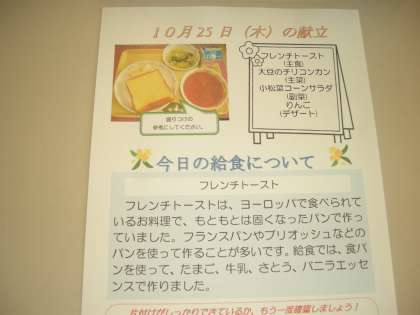 10月25日(木)の献立
フレンチトースト
(主食)
大豆のチリコンカン
(主菜)
小松菜コーンサラダ
(副菜)
りんご
(デザート)
盛りつけの
参考にしてください。
今日の給食について
フレンチトースト
フレンチトーストは、ヨーロッパで食べられて
いるお料理で、もともとは固くなったパンで作っ
ていました。フランスパンやブリオッシュなどの
パンを使って作ることが多いです。給食では、食パ
ンを使って、たまご、牛乳、さとう、バニラエッセ
ンスで作りました。
片付けがしっかりできているか、もう一度確認しましょう！